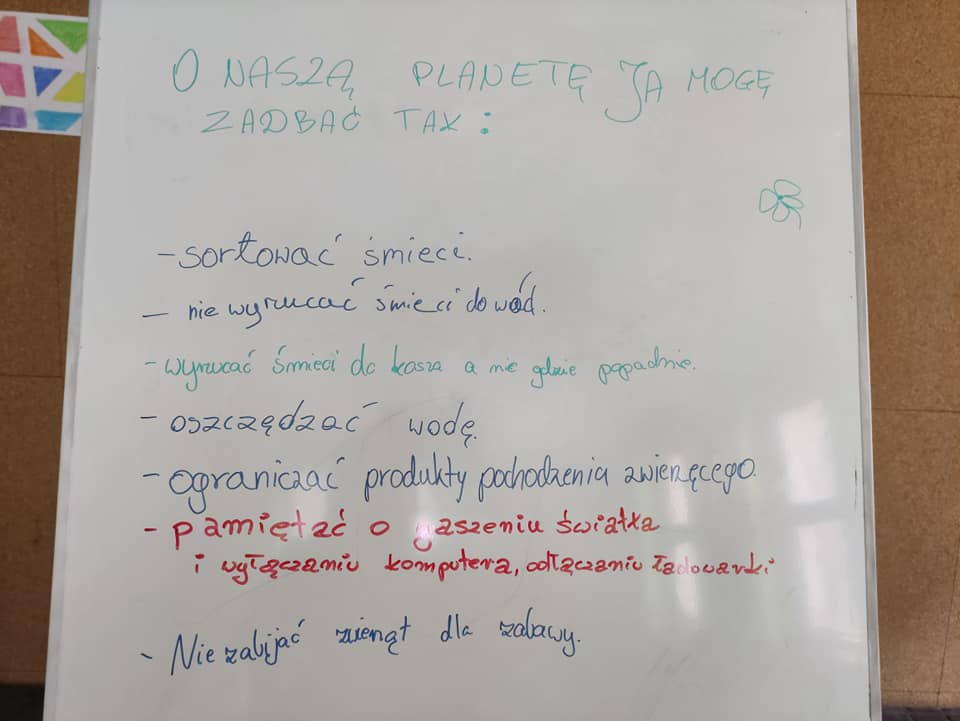 O NASZĄ PLANETĘ JA MOGĘ
ZADBAĆ TAK:
- sortować śmieci.
- nie wyrzucać śmieci do wód.
- wyrzucać śmieci do kosza a nie gdzie popadnie.
- oszczędzać wodę.
- ograniczać produkty pochodzenia zwierzęcego.
- pamiętać o gaszeniu światła
i wyłączaniu komputera, odłączaniu ładowarki
- Nie zabijać zwierząt dla zabawy.